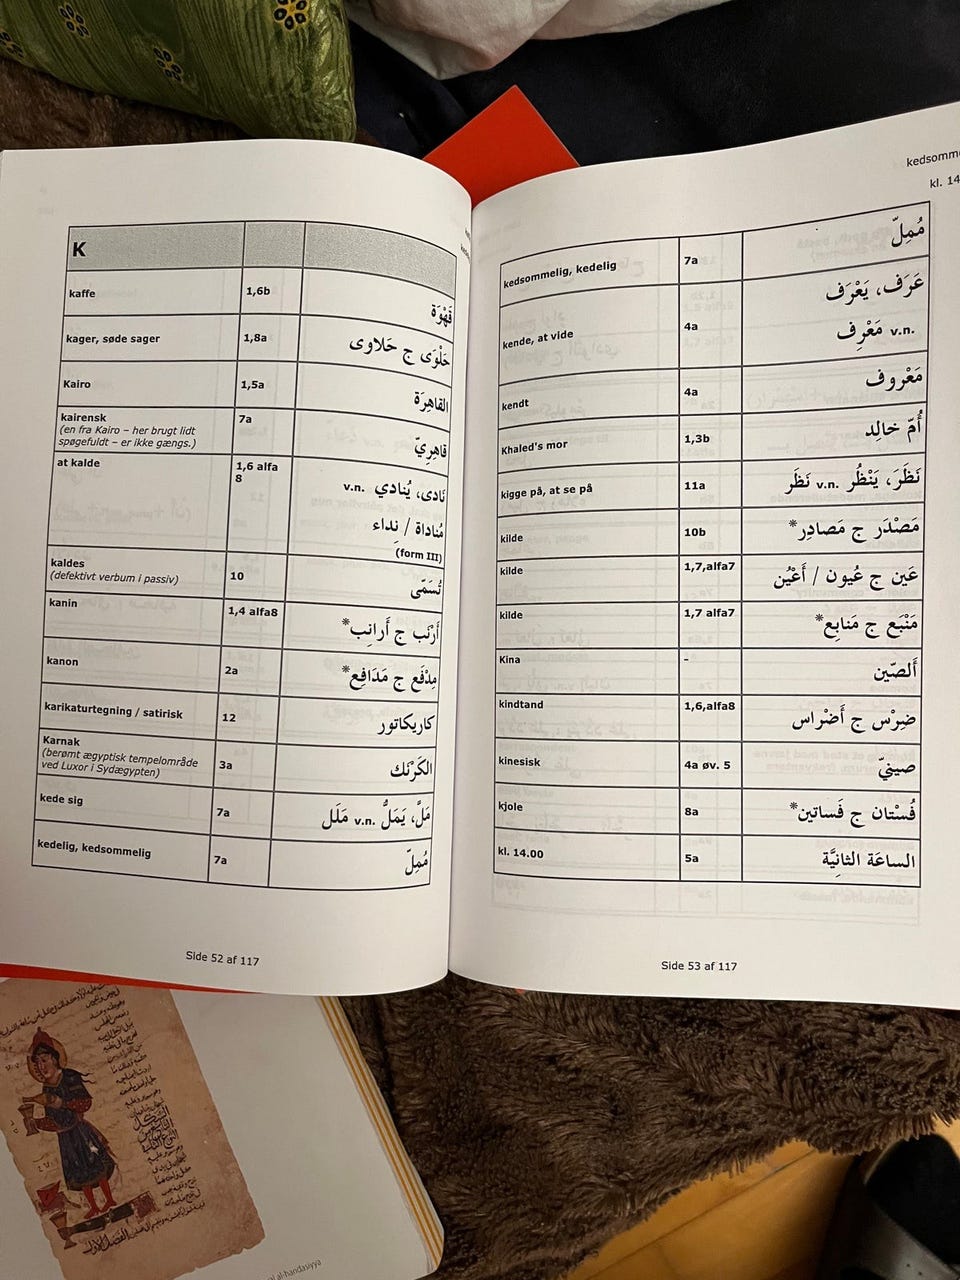 K
kaffe 1,6b قَهْوَة
kager, søde sager 1,8a حَلْوَى ج حَلاوى
Kairo 1,5a القاهِرَة
kairensk 7a قاهِرِيّ
(en fra Kairo – her brugt lidt
spøgefuldt – er ikke gængs.)
at kalde 1,6 alfa نَادى، يُنادي v.n.
8
مُناداة / نِداء
(form III)
kaldes 10 تُسَمّى
(defektivt verbum i passiv)
kanin 1,4 alfa8 أَرْنَب ج أَرانِب*
kanon 2a مِدْفَع ج مَدَافِع*
karikaturtegning / satirisk 12 كاريكاتور
Karnak 3a الكَرْنَك
(berømt ægyptisk tempelområde
ved Luxor i Sydægypten)
kede sig 7a مَلَّ، يَمَلُّ v.n. مَلَل
kedelig, kedsommelig 7a مُمِلّ
Side 52 af 117
kl. 14
kedsommelig, kedelig 7a مُمِلّ
kende, at vide 4a عَرَف، يَعْرَف
v.n. مَعْرِف
kendt 4a مَعْروف
Khaled's mor 1,3b أُمّ خالِد
kigge på, at se på 11a نَظَرَ، يَنْظُر v.n. نَظَر
kilde 10b مَصْدَر ج مَصادِر*
kilde 1,7,alfa7 عَين ج عُيون / أَعْيُن
kilde 1,7 alfa7 مَنْبَع ج مَنابِع*
Kina - ألصّين
kindtand 1,6,alfa8 ضِرْس ج أَضْراس
kinesisk 4a øv. 5 صينيّ
kjole 8a فُسْتان ج فَساتين*
kl. 14.00 5a الساعَة الثانِيَّة
Side 53 af 117
al-handasiyya